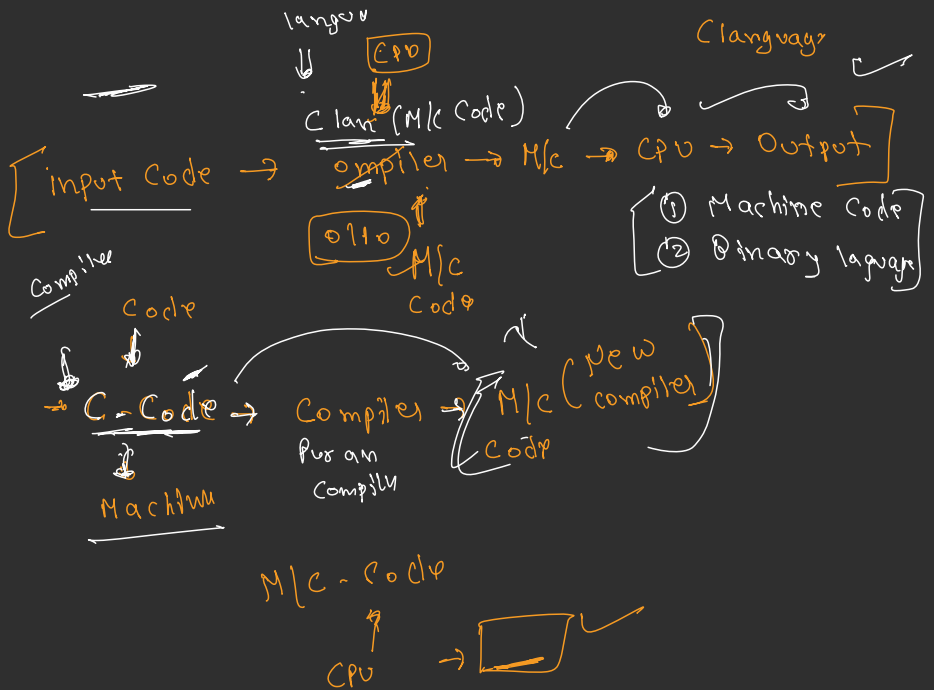 langu
CPU
C language
C lan (M/C Code)
input Code → ompiler → M/C → CPU → Output
0110
① Machine Code
② Binary laguage
M/C
Code
Compiler
Code
→ C-Code → Compiler → M/C (New
compiler)
Code
Puran
Compile
Machine
M/C-Code
CPU →